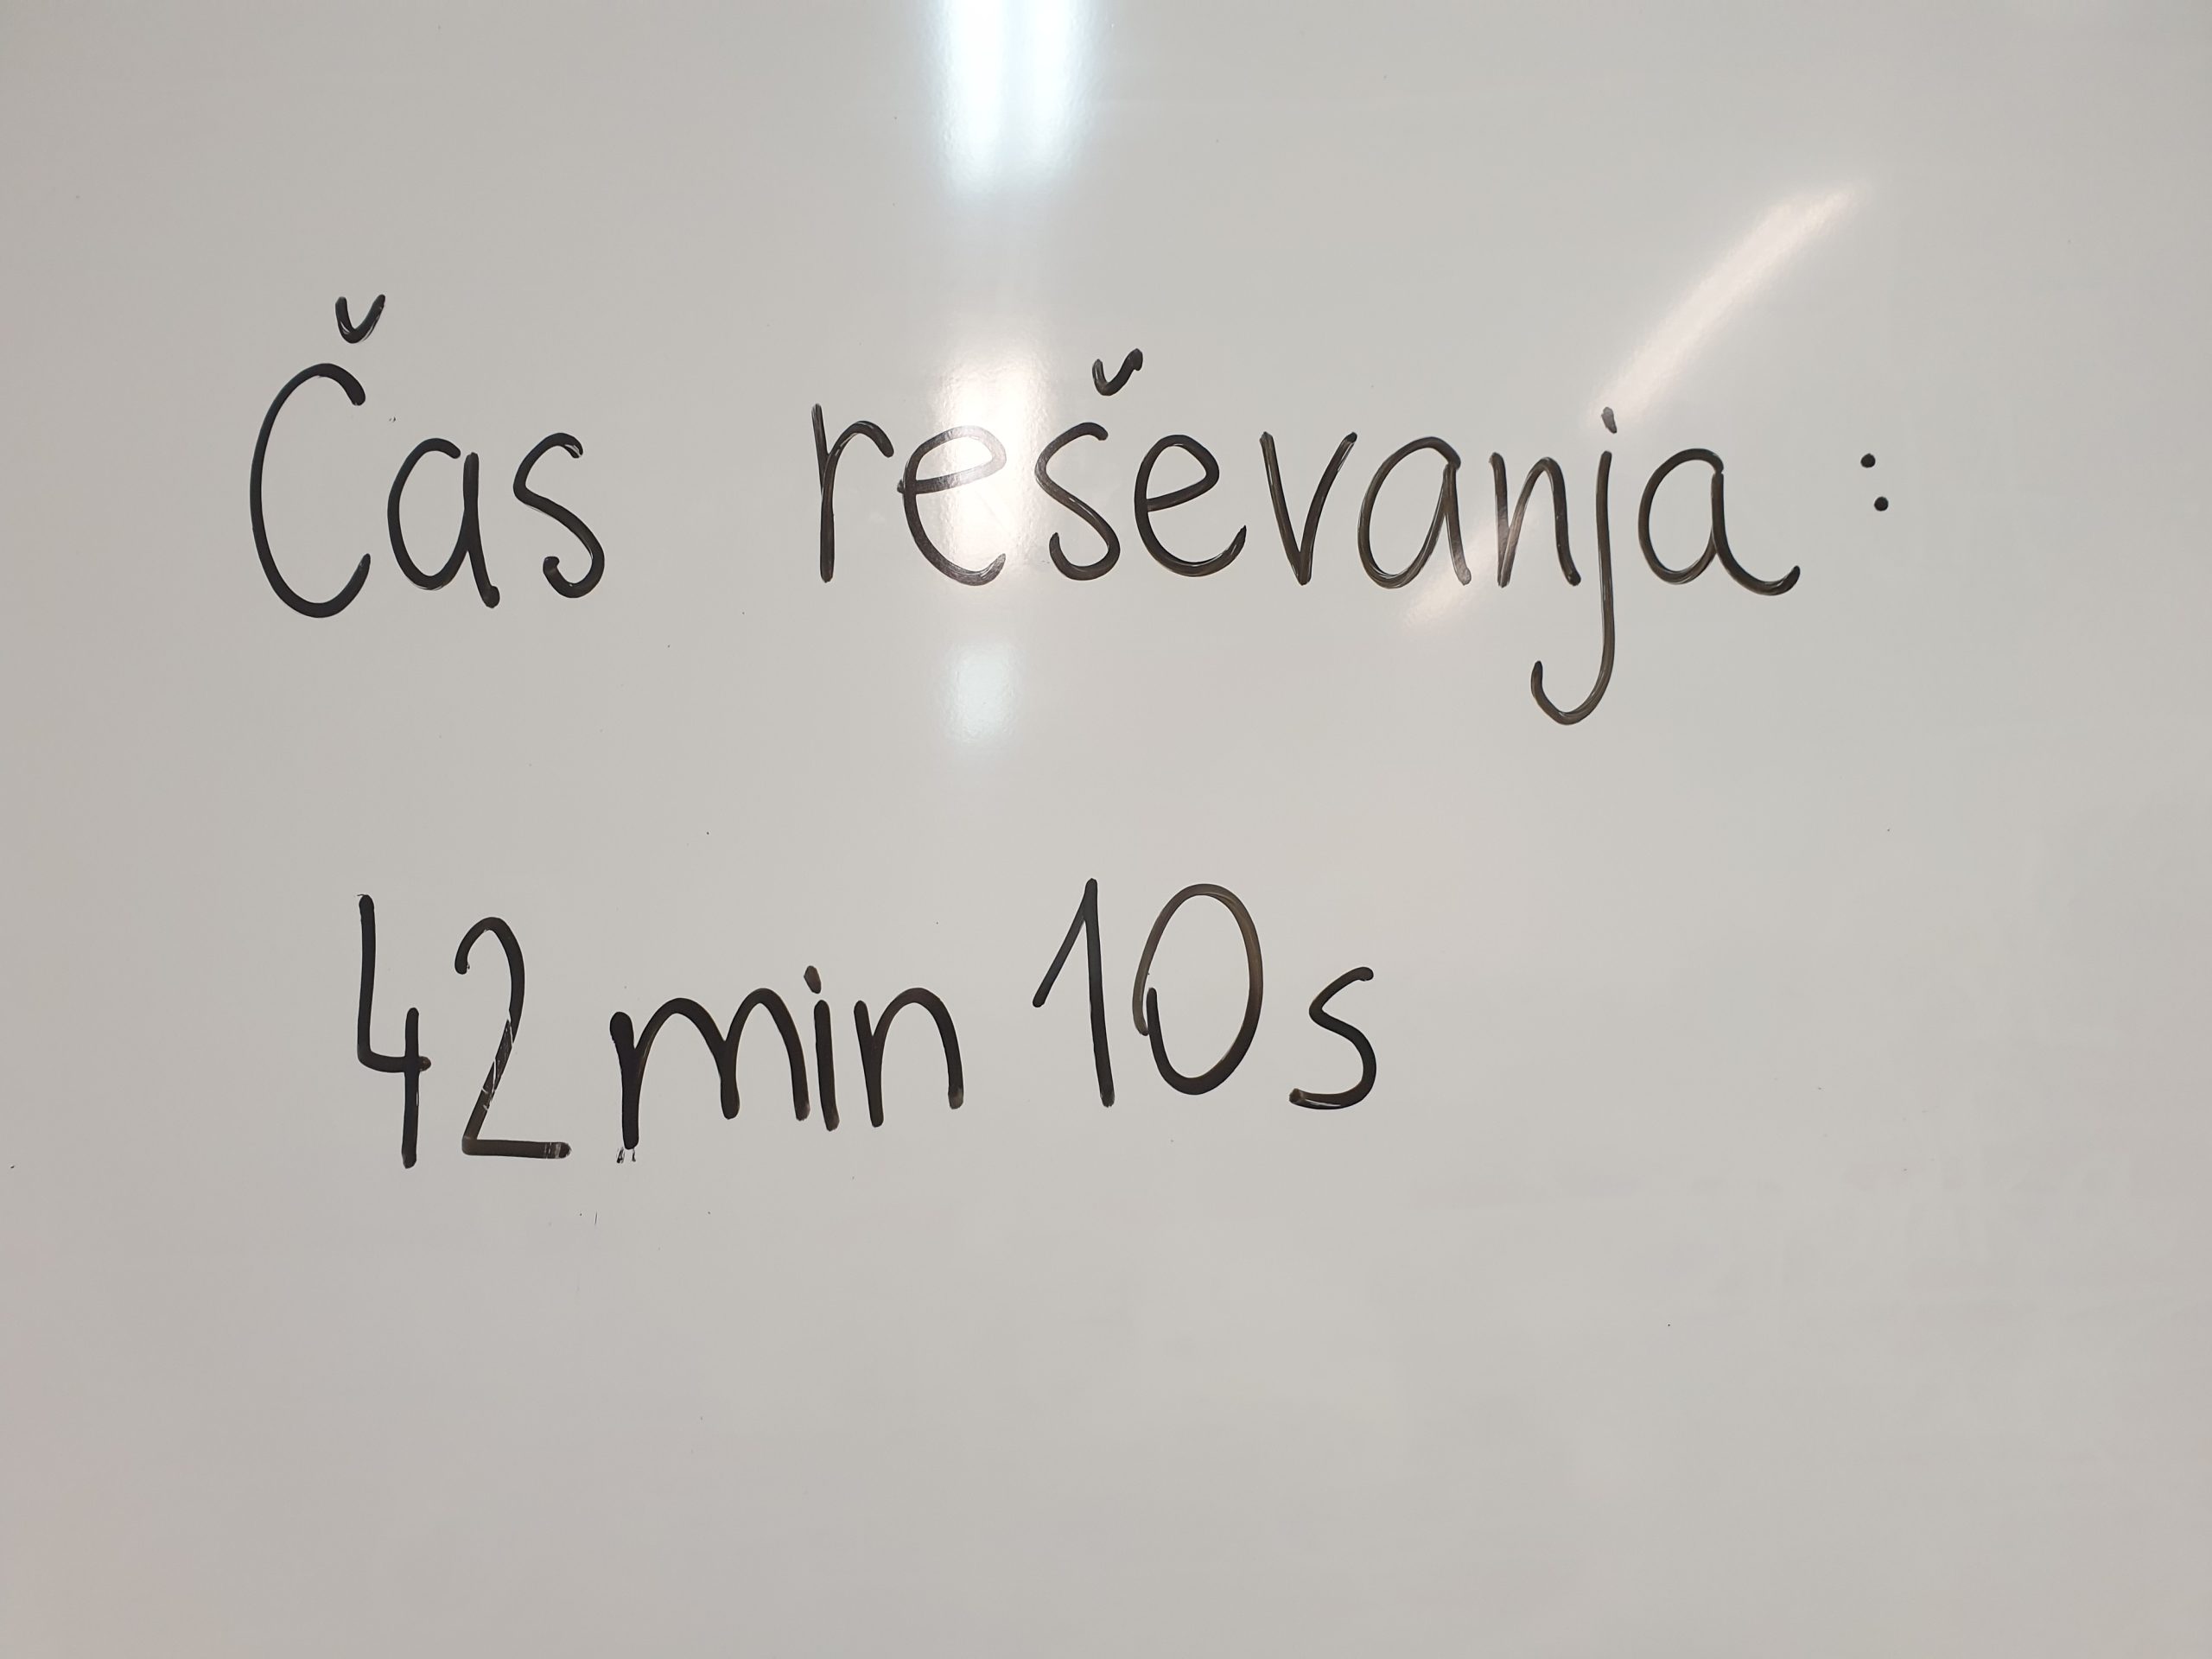 Čas reševanja :
42 min 10 s